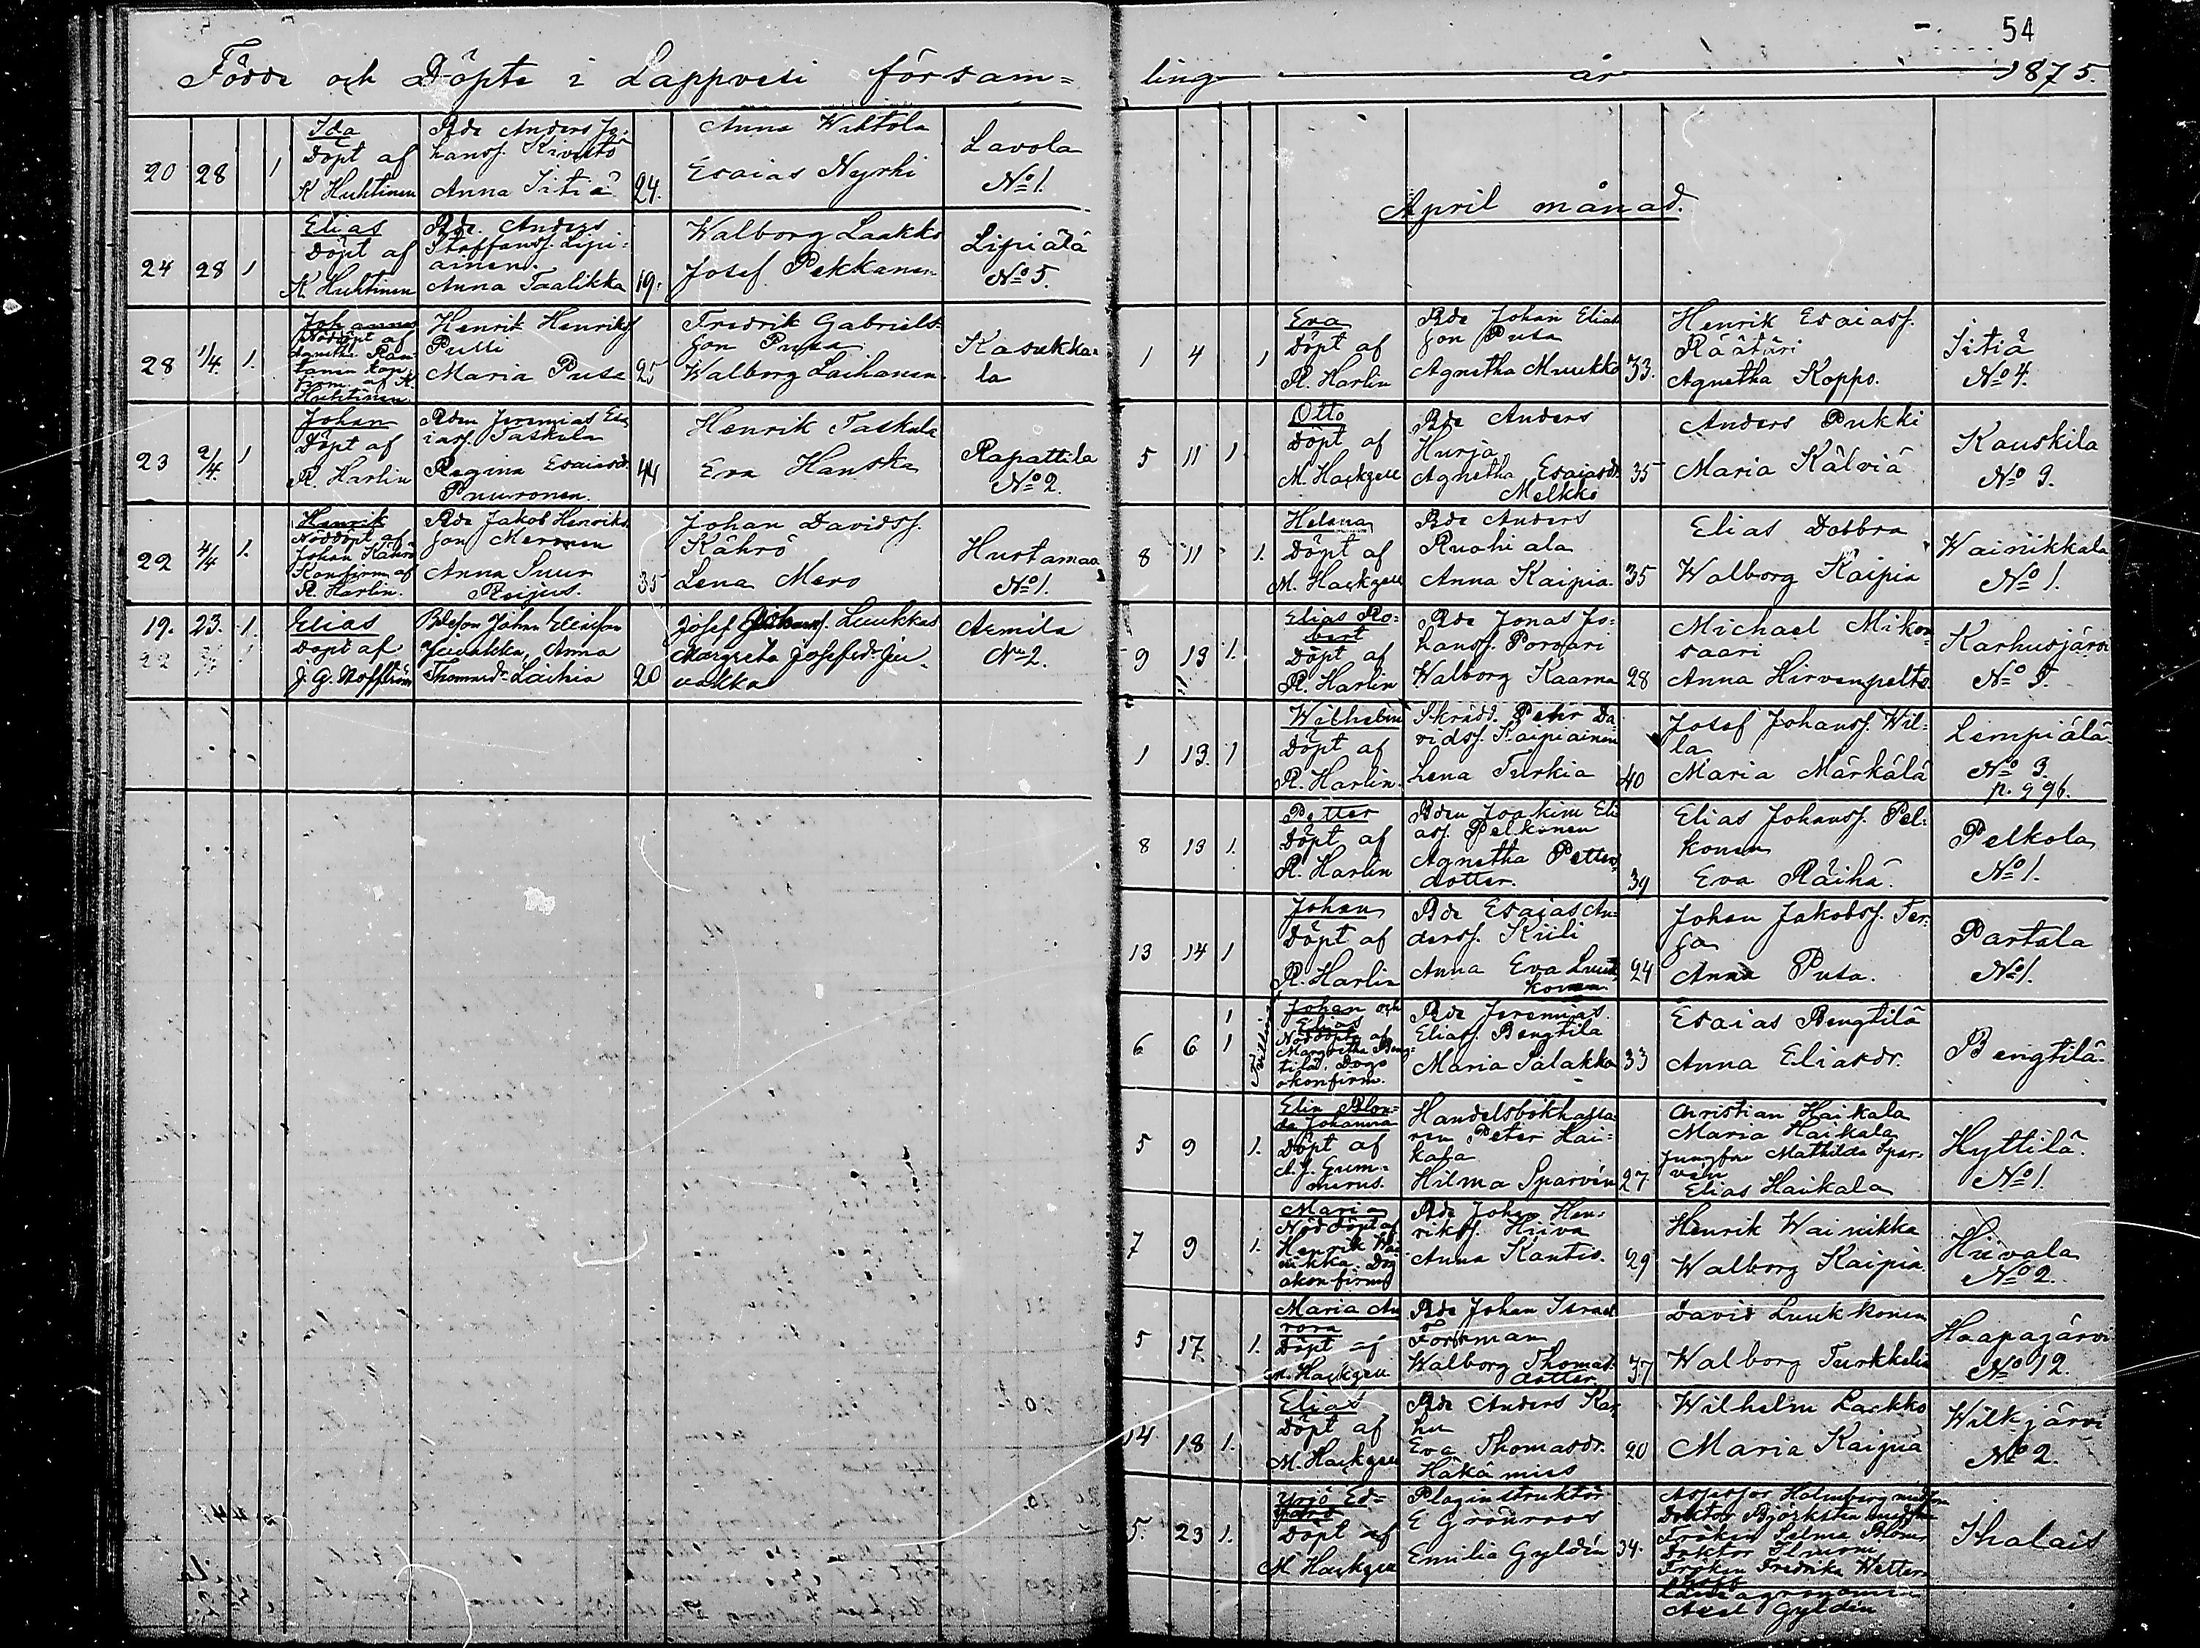 54
Födde och Döpte i Lappvesi försam=
ling år 1875.
20 28 1 Ida Döpt af K Huhtinen
Bde Anders Johanss. Kivistö Anna Iitiä 24.
Anna Wiktola Esaias Nyrhi
Lavola No 1.
24 28 1 Elias Döpt af K Huhtinen
Bde. Anders Staffanss. Lipiäinen. Anna Taalikka 19.
Walborg Laakko Josef Pekkanen
Lipiälä No 5.
28 1/4. 1. Johannes Nöddöpt af Agnetha af K Huhtinen
Henrik Henrikss Pulli Maria Pusa 25
Fredrik Gabrielsson Pusa Walborg Laihanen
Kasukkala
23 2/4. 1 Johan Döpt af R. Harlin
Bden Jeremias Esaiass. Taskula Regina Esaiasdr Puuronen. 44
Henrik Taskula Eva Hanska
Rapattila No 2.
22 4/4 1. Henrik Nöddöpt af Johan Kährö Konfirm af R. Harlin.
Bde Jakob Henriksson Meronen Anna Suur Reijus. 35
Johan Davidss. Kährö Lena Mero
Hurtamaa No 1.
19. 23. 1. Elias Döpt af J. G. Hoffström
Bdeson Johan Eliasson Juvakka Anna Thomasdr Laihia 20
Josef Johanss. Luukkas Margreta Josefsdr Juvakka
Armila No 2.
April månad.
1 4 1 Eva Döpt af R. Harlin
Bde Johan Eliasson Pusa Agnetha Muukko 33.
Henrik Esaiass. Räätäri Agnetha Koppo.
Iitiä No 4.
5 11 1 Otto Döpt af M. Hackzell
Bde Anders Hurja Agnetha Esaiasdr. Melkko 35
Anders Pukki Maria Kälviä
Kauskila No 9.
8 11 1. Helena Döpt af M. Hackzell
Bde Anders Ruohiala Anna Kaipia. 35
Elias Dobbra Walborg Kaipia
Wainikkala No 1.
9 13 1. Elias Robert Döpt af R. Harlin
Bde Jonas Johanss. Porvari Walborg Kaarna 28
Michael Mikonsaari Anna Hirvenpelto
Karhusjärvi No 5.
1 13. 1 Wilhelm Döpt af R. Harlin.
Skrädd. Peter Davidss. Kaipiainen Lena Turkia 40
Josef Johanss. Willa Maria Märkälä
Lempiälä No 3. p. 996.
8 13 1. Petter Döpt af R. Harlin
Bden Joakim Eliass. Pelkonen Agnetha Pettersdotter. 39
Elias Johanss. Pelkonen Eva Räihä.
Pelkola No 1.
13 14 1 Johan Döpt af R. Harlin
Bde Esaias Anderss. Kiili Anna Eva Luukkonen 24
Johan Jakobss. Anna Pusa.
Partala No 1.
6 6 1 1 Tvillingar Johan och Elias Nöddöpta af Margretha Bengtilä. Dogo okonfirm.
Bde Jeremias Eliass. Bengtilä Maria Salakka 33
Esaias Bengtilä Anna Eliasdr.
Bengtilä.
5 9 1. Elin Blonda Johanna Döpt af A. J. Gummerus.
Handelsbokhållaren Peter Haikala Hilma Sparvin 27
Christian Haikala Maria Haikala Jungfru Mathilda Sparvin Elias Haikala
Hyttilä. No 1.
7 9 1. Maria Nöddöpt af Henrik Wainikka. Dog okonfirm
Bde Johan Henrikss. Hiiva Anna Kantis. 29
Henrik Wainikka Walborg Kaipia
Hiivala No 2.
5 17 1. Maria Aurora Döpt af M. Hackzell
Bde Johan Israel Forsman Walborg Thomasdotter 37
David Luukkonen Walborg Turkkelia
Haapajärvi No 12.
14 18 1. Elias Döpt af M. Hackzell
Bde Anders Karhu Eva Thomasdr. Häkämies 20
Wilhelm Laakko Maria Kaipia
Wilkjärvi No 2.
5. 23 1. Yrjö Edvard Döpt af M Hackzell
Plaginstruktör E Grönroos Emilia Gyldén 34.
Assessor Holmberg med fru Doktor Björkstén med fru Fröken Selma Blom Doktor Ilmoni Fröken Fredrika Wetter agronomen Axel Gyldén
Ihalais